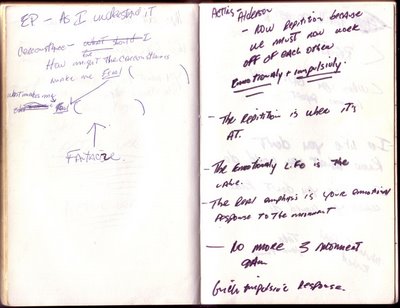 EP - As I understand it
Circumstance - what should I
be
How might the circumstances
make me FEEL
what makes me
FEEL
FANTASIZE
Acting Alderson
- NOW Repitition because
we must now work
off of each other
Emotionally + impulsively.
- The Repitition is where it's
AT.
- The Emotionally Life is the
- The Real emphasis is your emotional
response to the moment
- NO more 3 moment
game
Quick impulsive Response.